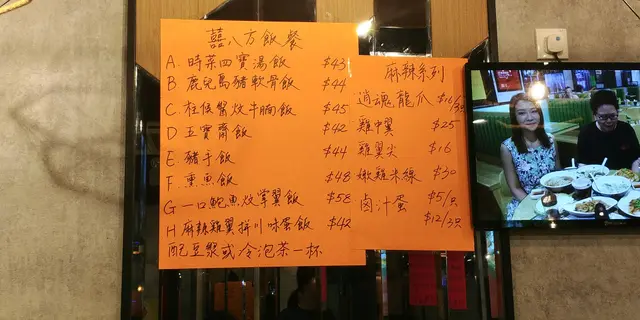 囍八方飯餐
A. 時菜四寶湯飯 $43
B 鹿兒島豬軟骨飯 $44
C. 柱侯醬炆牛腩飯 $45
D 五寶齋飯 $42
E. 豬手飯 $44
F 熏魚飯 $48
G 一口鮑魚炆掌翼飯 $58
H 麻辣雞翼拼川味蛋飯 $42
配豆漿或冷泡茶一杯
麻辣系列
逍魂龍爪 $16/
雞中翼 $25
雞翼尖 $16
嫩雞米線 $30
鹵汁蛋 $5/只
$12/3只